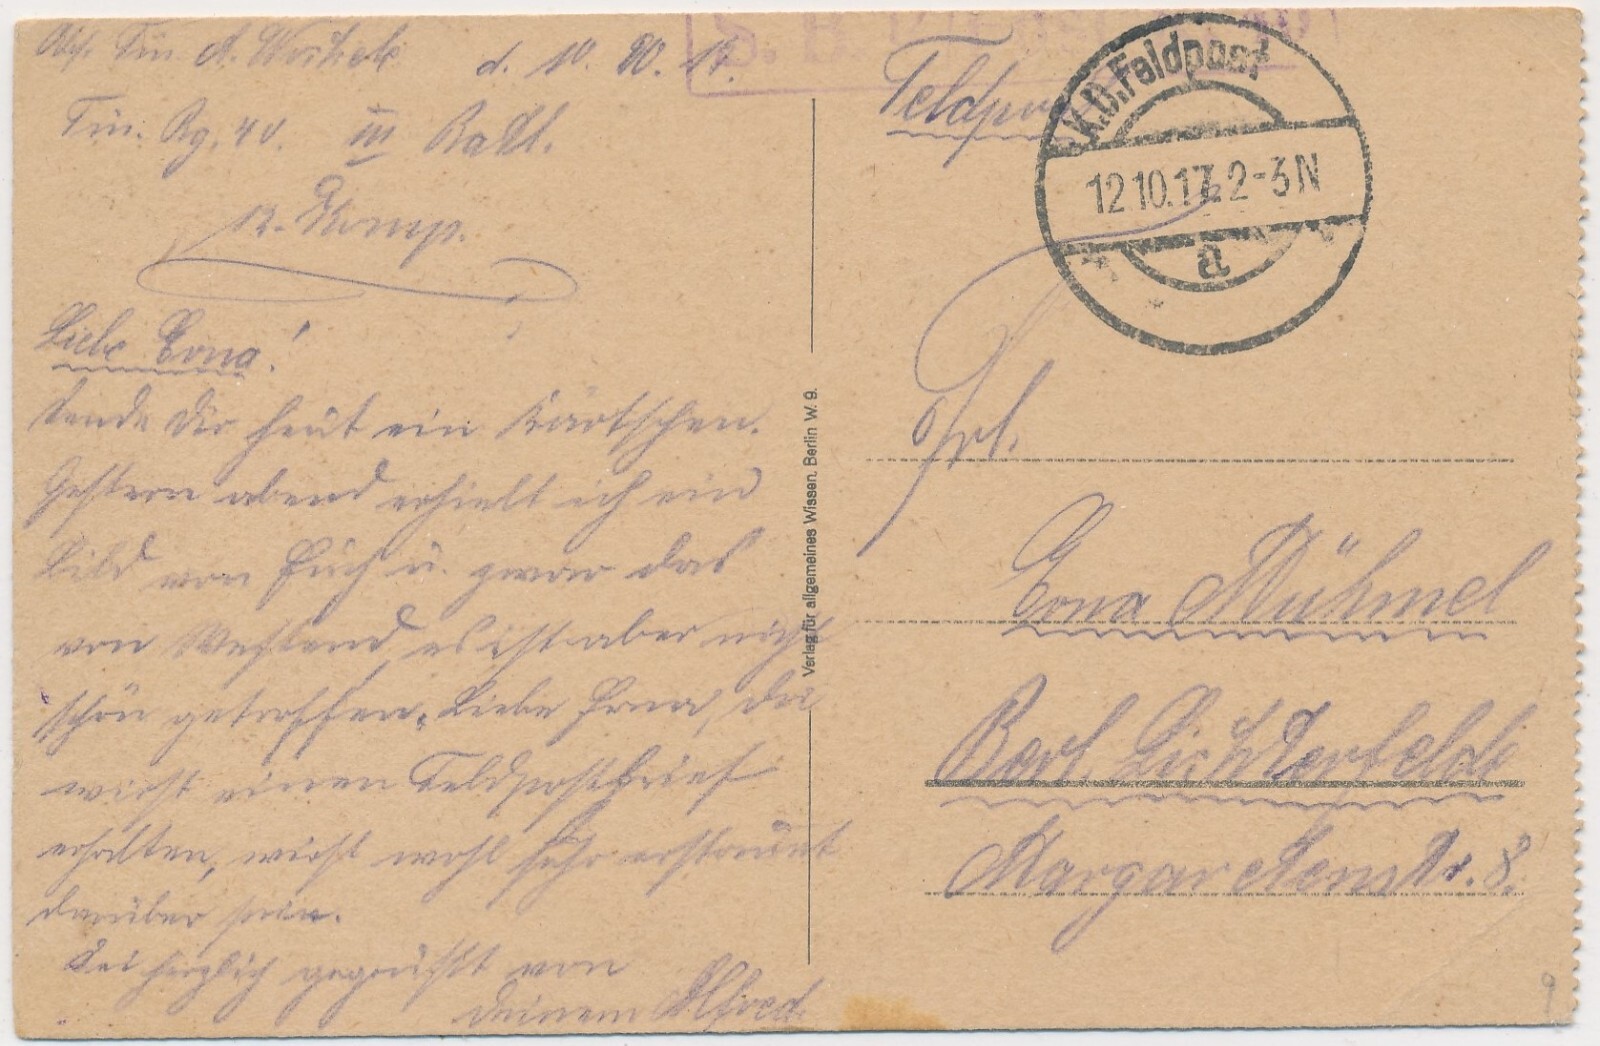 Abs. Füs. A.
d. 10. 10. 17.
Füs. Rg. 40. III Batl.
12. Komp.
Liebe Erna!
Sende Dir heut ein Kärtschen.
Gestern abend erhielt ich ein
Bild von Euch u. zwar das
von Westend, es ist aber nicht
schön getroffen. Liebe Erna, du
wirst einen Feldpostbrief
erhalten, wirst wohl sehr erstaunt
darüber sein.
Sei herzlich gegrüßt von
deinem Alfred.
Verlag für allgemeines Wissen. Berlin W. 9.
S. B.
Feldpost
K.D. Feldpost
12.10.17. 2-3 N
a
Frl.
Erna Mühmel
Berl. Lichterfelde
Margaretenstr. 8.
9